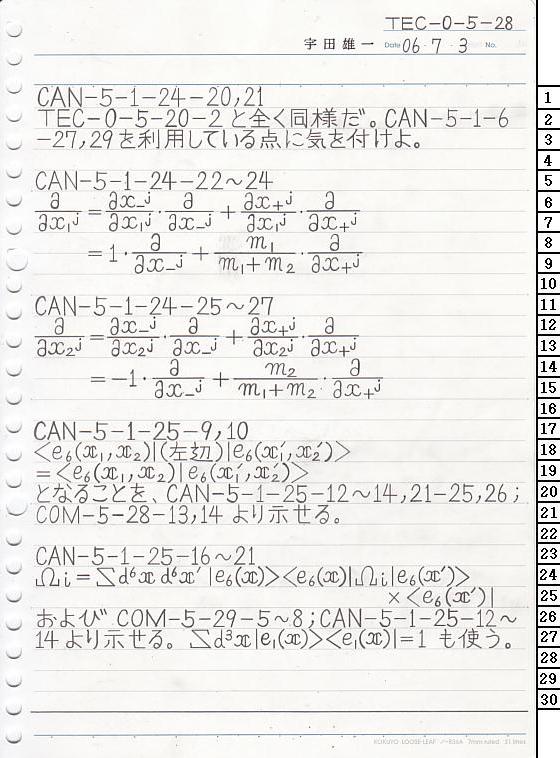 TEC-0-5-28
宇田雄一 Date 06・7・3 No.
CAN-5-1-24-20,21
TEC-0-5-20-2 と全く同様だ。CAN-5-1-6
-27,29を利用している点に気を付けよ。
CAN-5-1-24-22~24
∂/∂x₁ʲ = ∂x₋ʲ/∂x₁ʲ · ∂/∂x₋ʲ + ∂x₊ʲ/∂x₁ʲ · ∂/∂x₊ʲ
= 1 · ∂/∂x₋ʲ + m₁/(m₁+m₂) · ∂/∂x₊ʲ
CAN-5-1-24-25~27
∂/∂x₂ʲ = ∂x₋ʲ/∂x₂ʲ · ∂/∂x₋ʲ + ∂x₊ʲ/∂x₂ʲ · ∂/∂x₊ʲ
= -1 · ∂/∂x₋ʲ + m₂/(m₁+m₂) · ∂/∂x₊ʲ
CAN-5-1-25-9,10
<e₆(x₁,x₂)|(左辺)|e₆(x₁′,x₂′)>
=<e₆(x₁,x₂)|e₆(x₁′,x₂′)>
となることを、CAN-5-1-25-12~14,21-25,26;
COM-5-28-13,14 より示せる。
CAN-5-1-25-16~21
Ωi=∑d⁶x d⁶x′ |e₆(x)><e₆(x)|Ωi|e₆(x′)>
×<e₆(x′)|
および COM-5-29-5~8;CAN-5-1-25-12~
14より示せる。∑d³x|e₁(x)><e₁(x)|=1 も使う。
KOKUYO LOOSE-LEAF ノ-836A 7mm ruled 31 lines
1
2
3
4
5
6
7
8
9
10
11
12
13
14
15
16
17
18
19
20
21
22
23
24
25
26
27
28
29
30